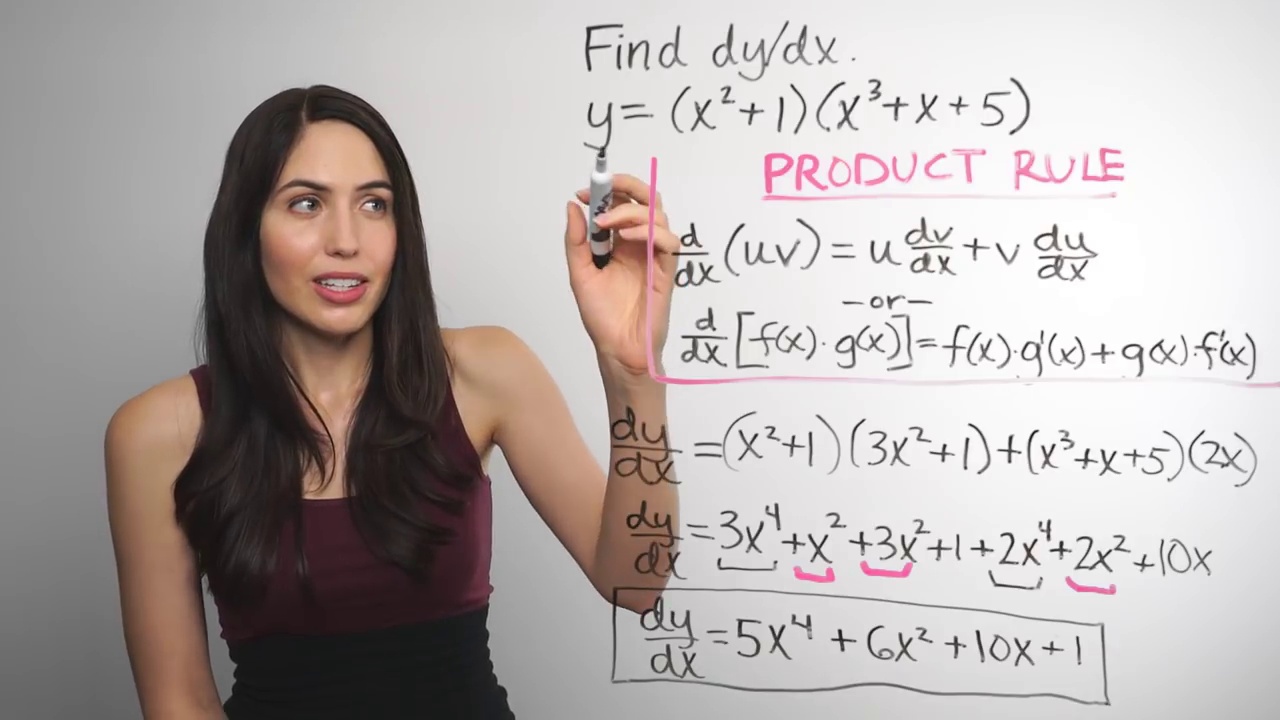 Find dy/dx.
y = (x²+1)(x³+x+5)
PRODUCT RULE
d/dx (uv) = u dv/dx + v du/dx
-or-
d/dx [f(x)·g(x)] = f(x)·g'(x)+g(x)·f'(x)
dy/dx = (x²+1)(3x²+1)+(x³+x+5)(2x)
dy/dx = 3x⁴+x²+3x²+1+2x⁴+2x²+10x
dy/dx = 5x⁴+6x²+10x+1